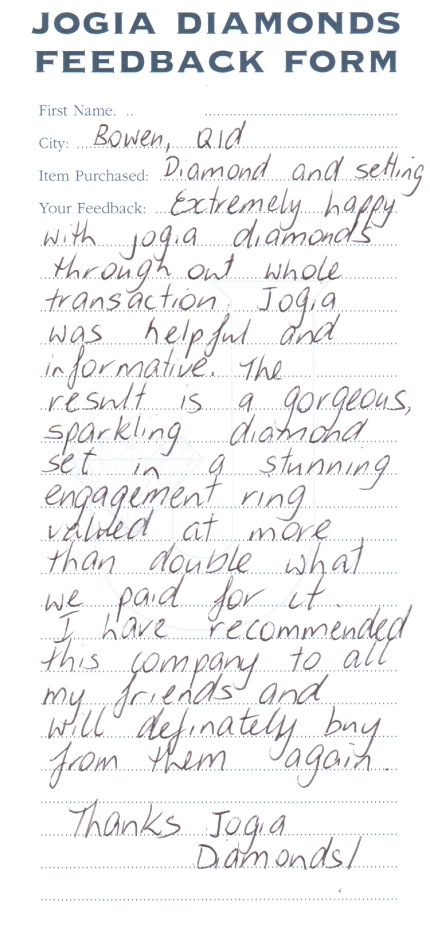 JOGIA DIAMONDS
FEEDBACK FORM
First Name:
City: Bowen, Qld
Item Purchased: Diamond and setting
Your Feedback: Extremely happy
with jogia diamonds
through out whole
transaction. Jogia
was helpful and
informative. The
result is a gorgeous,
sparkling diamond
set in a stunning
engagement ring
valued at more
than double what
we paid for it.
I have recommended
this company to all
my friends and
will definately buy
from them again.
Thanks Jogia
Diamonds!